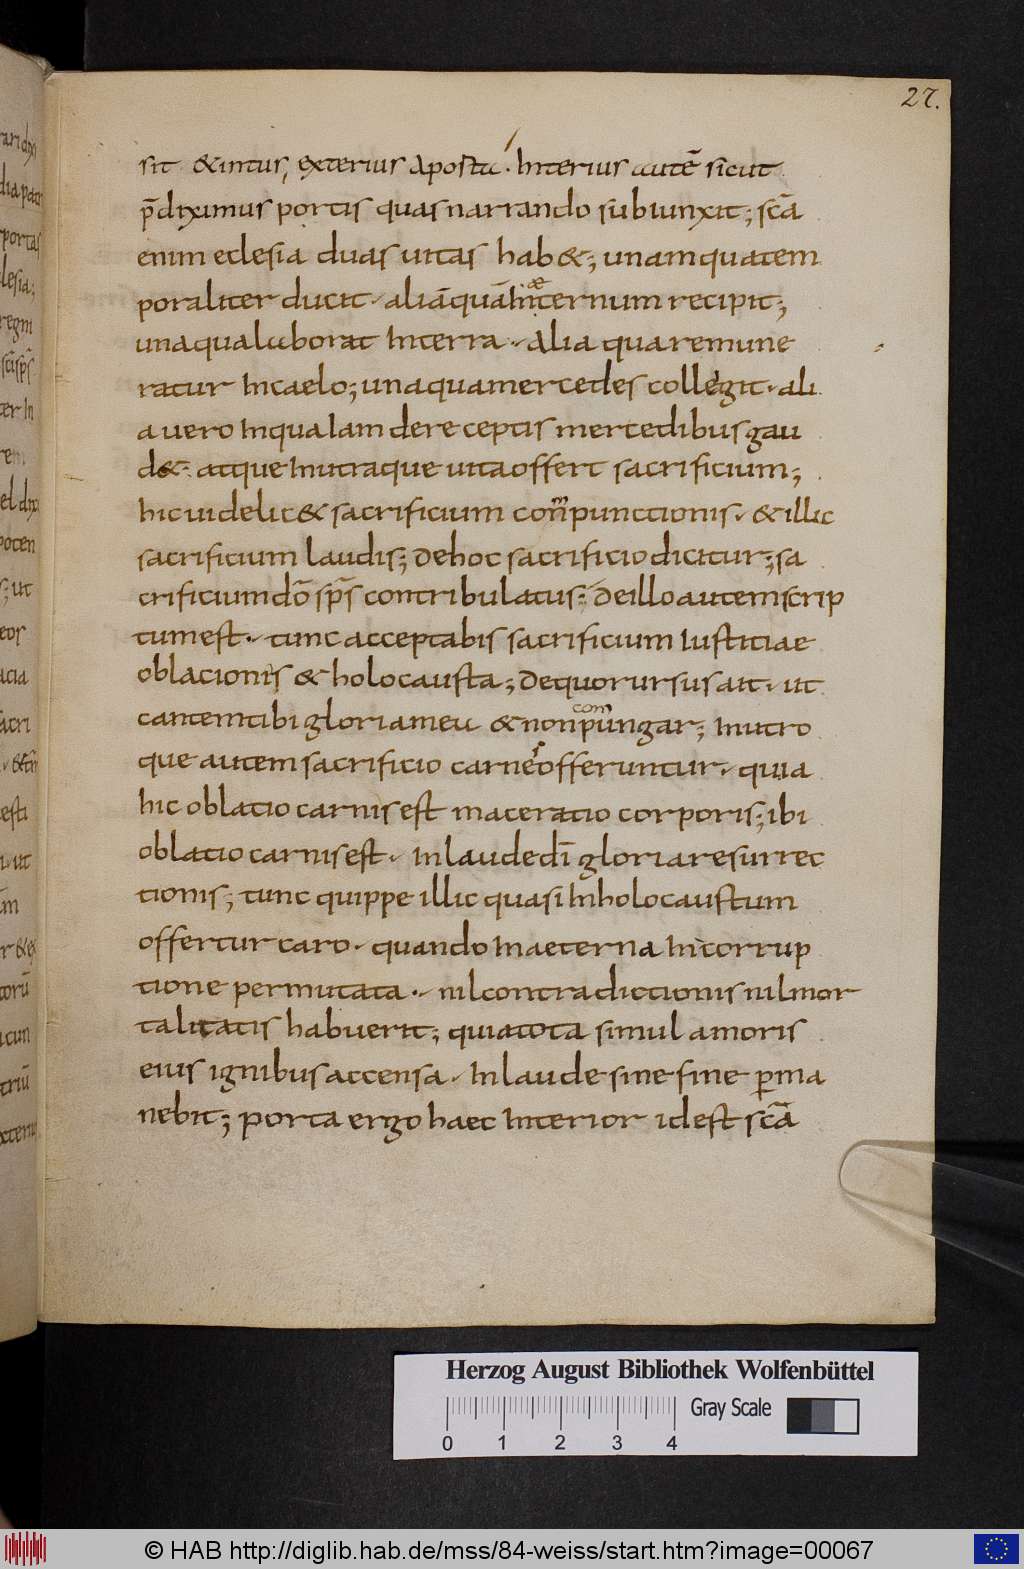 27.
sit & intus, exterius apostu · Interius autē sicut
p̄diximus portis quas narrando subiunxit; scā
enim eclesia duas uitas hab&; unam qua tem
poraliter ducit · aliā quā In æternum recipit;
una qua laborat In terra · Alia qua remune
ratur In caelo; una qua mercedes collegit · ali
a uero In qua Iam de receptis mercedibus gau
d&· atque In utraque uita offert sacrificium;
hic uidelic& sacrificium conmpunctionis · & illic
sacrificium laudis; De hoc sacrificio dicitur; sa
crificium dō sp̄s contribulatus; De illo autem scrip
tum est · tunc acceptabis sacrificium Iustitiae
oblacionis & holocausta; De quo rursus ait · ut
cantem tibi gloria meu & non conpūngar; In utro
que autem sacrificio carnes offeruntur · quia
hic oblatio carnis est maceratio corporis; ibi
oblatio carnis est · In laude dī gloria resurrec
tionis; tunc quippe illic quasi In holocaustum
offertur caro · quando In aeterna Incorrup
tione permutata · nil contradictionis nil mor
talitatis habuerit; quia tota simul amoris
eius ignibus accensa · In laude sine fine p̱ma
nebit; porta ergo haec Interior id est scā
Herzog August Bibliothek Wolfenbüttel
Gray Scale
0 1 2 3 4
© HAB http://diglib.hab.de/mss/84-weiss/start.htm?image=00067